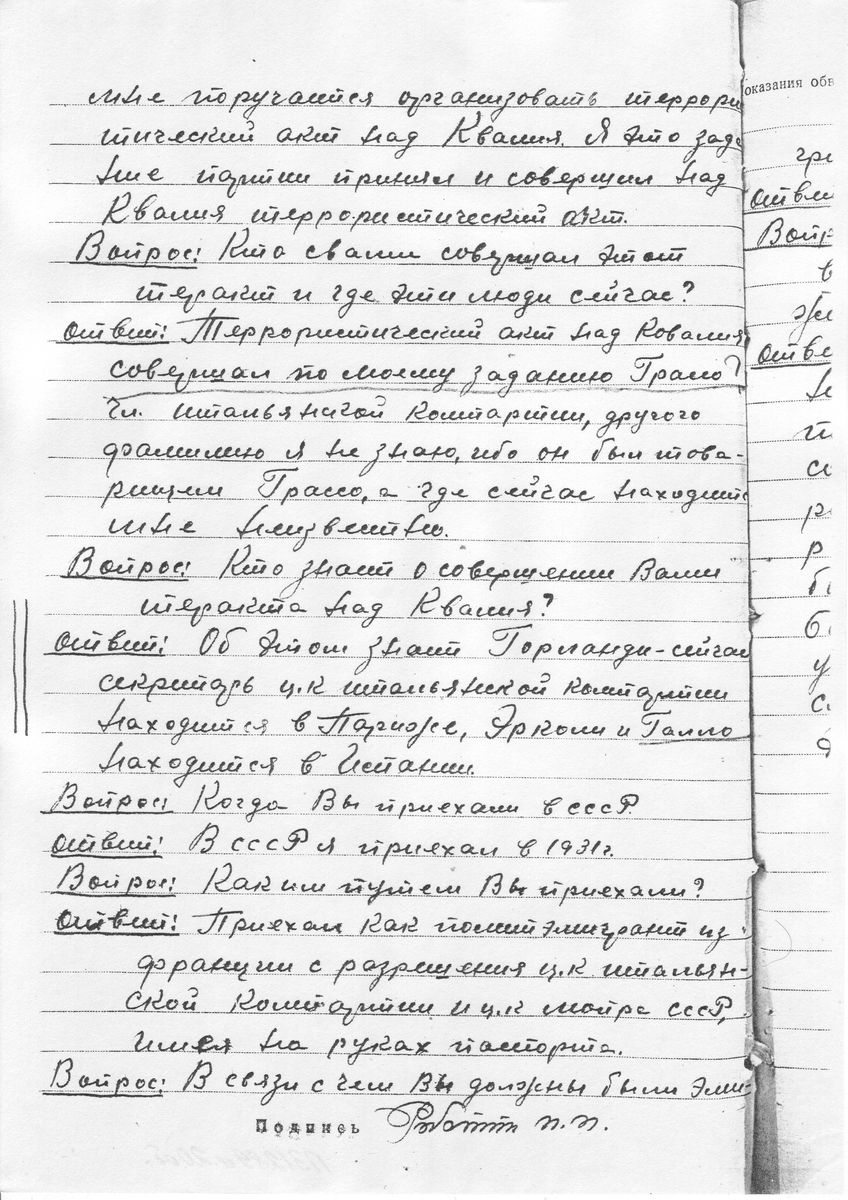 мне поручается организовать террори
тический акт над Квалия. Я это зада
ние партии принял и совершил над
Квалия террористический акт.
Вопрос: Кто с вами совершал этот
теракт и где эти люди сейчас?
Ответ: Террористический акт над Ковалия
совершал по моему заданию Грассо
Чл. итальянской компартии, другого
фамилию я не знаю, ибо он был това-
рищем Грассо, а где сейчас находится
мне неизвестно.
Вопрос: Кто знает о совершении Вами
теракта над Квалия?
Ответ: Об этом знает Горланди-сейчас
секретарь ц.к итальянской компартии
находится в Париже, Эрколи и Галло
находится в Испании.
Вопрос: Когда Вы приехали в СССР.
Ответ: В СССР я приехал в 1931г.
Вопрос: Каким путем Вы приехали?
Ответ: Приехал как политэмигрант из
франции с разрешения ц.к итальян-
ской компартии и ц.к мопра СССР,
имея на руках паспорта.
Вопрос: В связи с чем Вы должны были эми-
Подпись Роботти П.П.
оказания обв
Ответ
Вопр
Отве